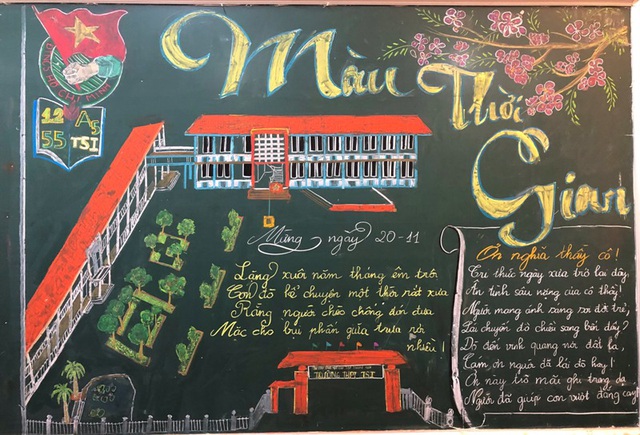 Màu
Thời
Gian
12 A5
55 TSI
Mừng ngày 20-11
Lặng xuôi năm tháng êm trôi
Con đò kể chuyện một thời rất xưa
Rằng người chèo chống đón đưa
Mặc cho bụi phấn giữa trưa rơi
nhiều!
TRƯỜNG THPT TSI
Ơn nghĩa thầy cô!
Tri thức ngày xưa trở lại đây,
Ân tình sâu nặng của cô thầy!
Người mang ánh sáng soi đời trẻ,
Lái chuyến đò chiều sang bến đây?
Đò đến vinh quang nơi đất lạ,
Cám ơn người đã lái đò hay!
Ơn này trò mãi ghi trong dạ
Người đã giúp con vượt đắng cay!